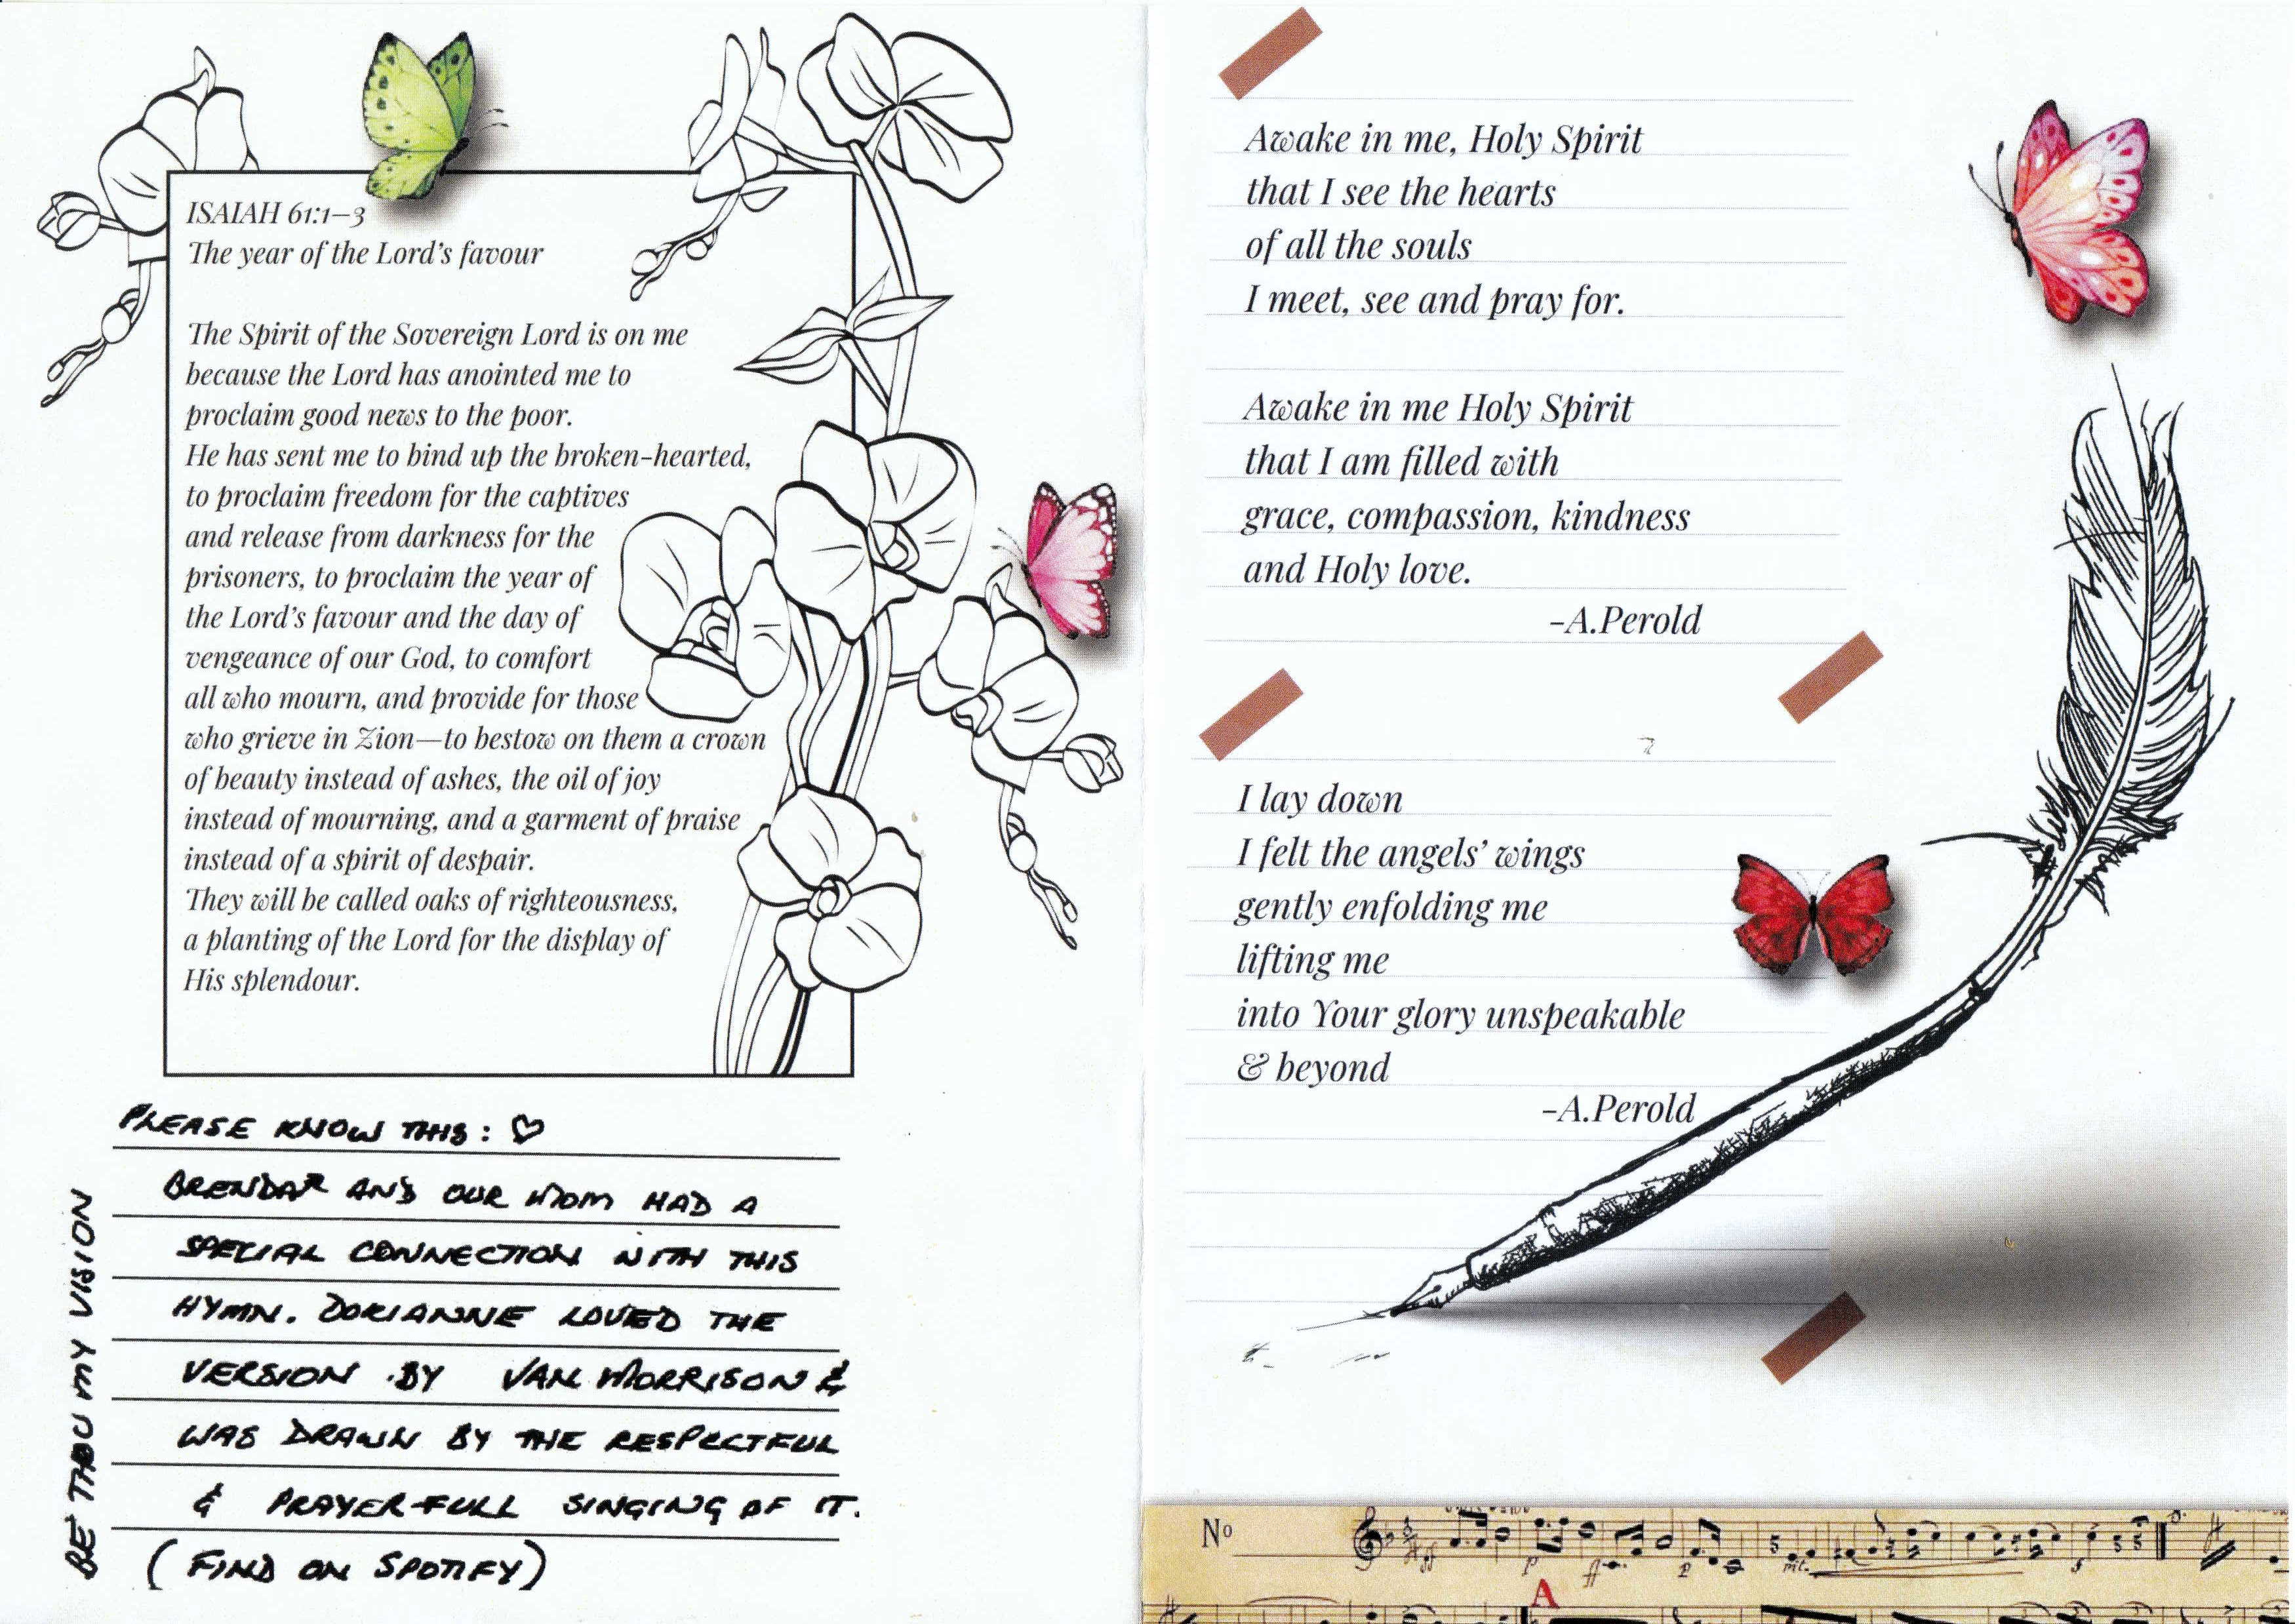 ISAIAH 61:1–3
The year of the Lord's favour
The Spirit of the Sovereign Lord is on me
because the Lord has anointed me to
proclaim good news to the poor.
He has sent me to bind up the broken-hearted,
to proclaim freedom for the captives
and release from darkness for the
prisoners, to proclaim the year of
the Lord's favour and the day of
vengeance of our God, to comfort
all who mourn, and provide for those
who grieve in Zion—to bestow on them a crown
of beauty instead of ashes, the oil of joy
instead of mourning, and a garment of praise
instead of a spirit of despair.
They will be called oaks of righteousness,
a planting of the Lord for the display of
His splendour.
BE THOU MY VISION
PLEASE KNOW THIS: ♡
AND OUR MOM HAD A
SPECIAL CONNECTION WITH THIS
HYMN. DORIANNE LOVED THE
VERSION BY VAN MORRISON &
WAS DRAWN BY THE RESPECTFUL
& PRAYER-FULL SINGING OF IT.
(FIND ON SPOTIFY)
Awake in me, Holy Spirit
that I see the hearts
of all the souls
I meet, see and pray for.
Awake in me Holy Spirit
that I am filled with
grace, compassion, kindness
and Holy love.
–A.Perold
I lay down
I felt the angels' wings
gently enfolding me
lifting me
into Your glory unspeakable
& beyond
–A.Perold
Nº
A